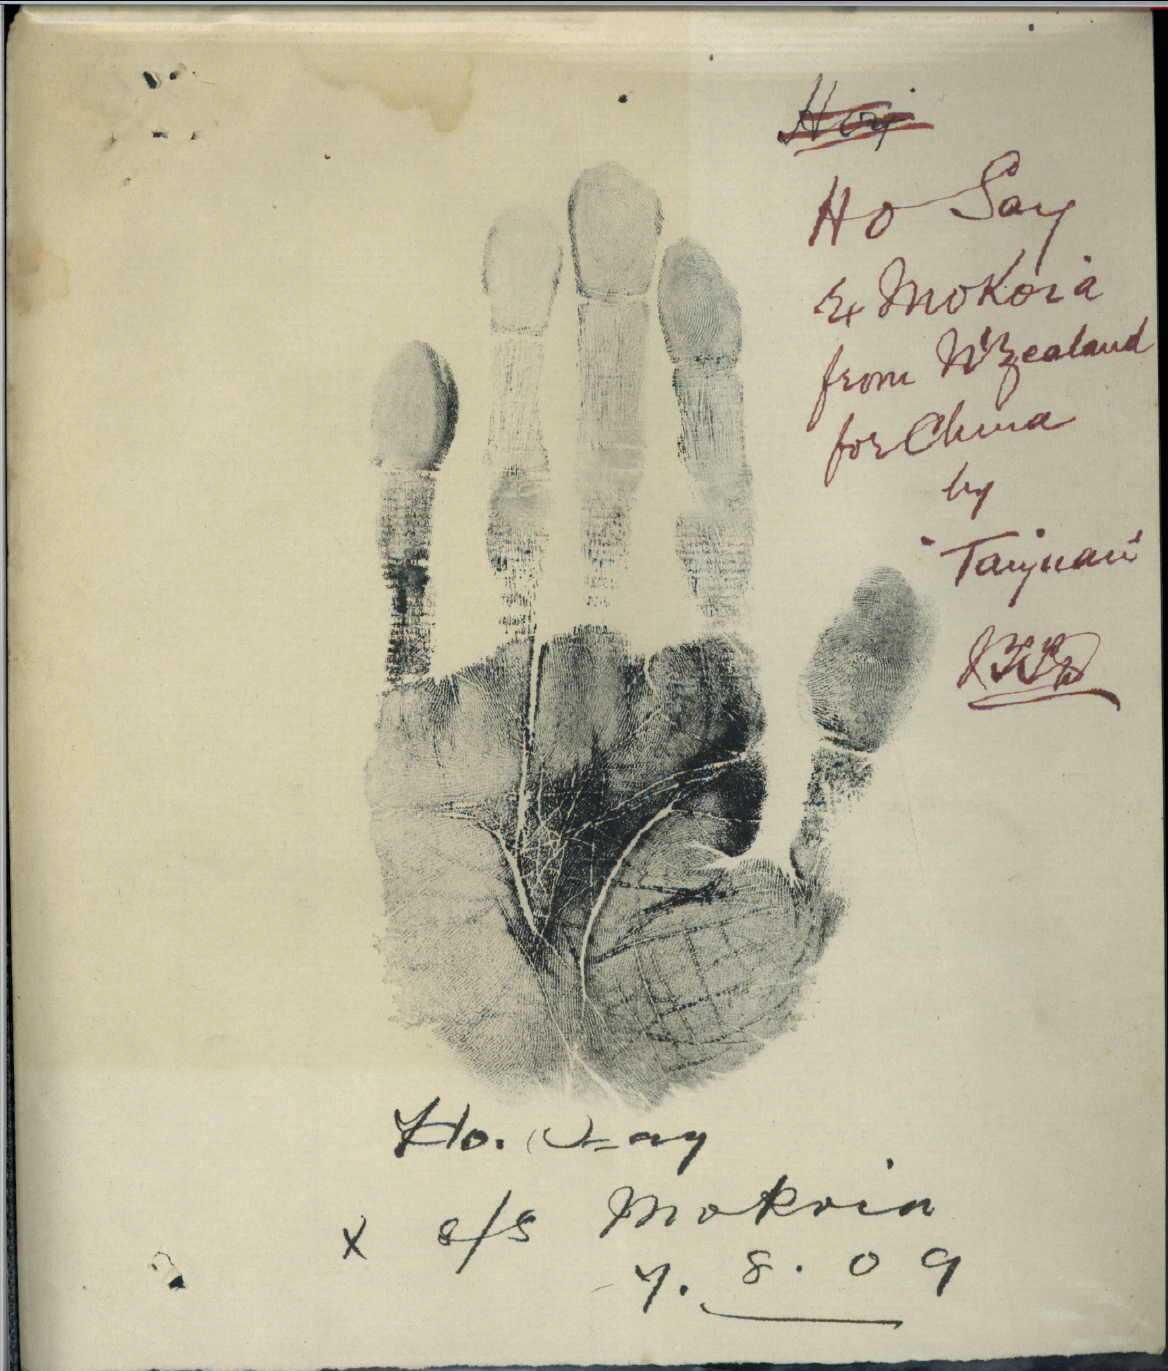 Ho Say
Ex Mokoia
from N' Zealand
for China
by
"Taiyuan"
Ho. Say
x s/s Mokoia
7. 8. 09